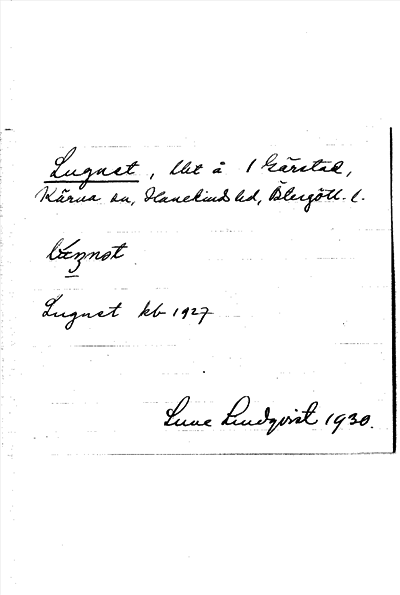 Lugnet, lht å 1 Gärstad,
Kärna sn, Hanekinds hd, Östergötl. l.
Lugnet kb 1927
Sune Lindqvist 1930.